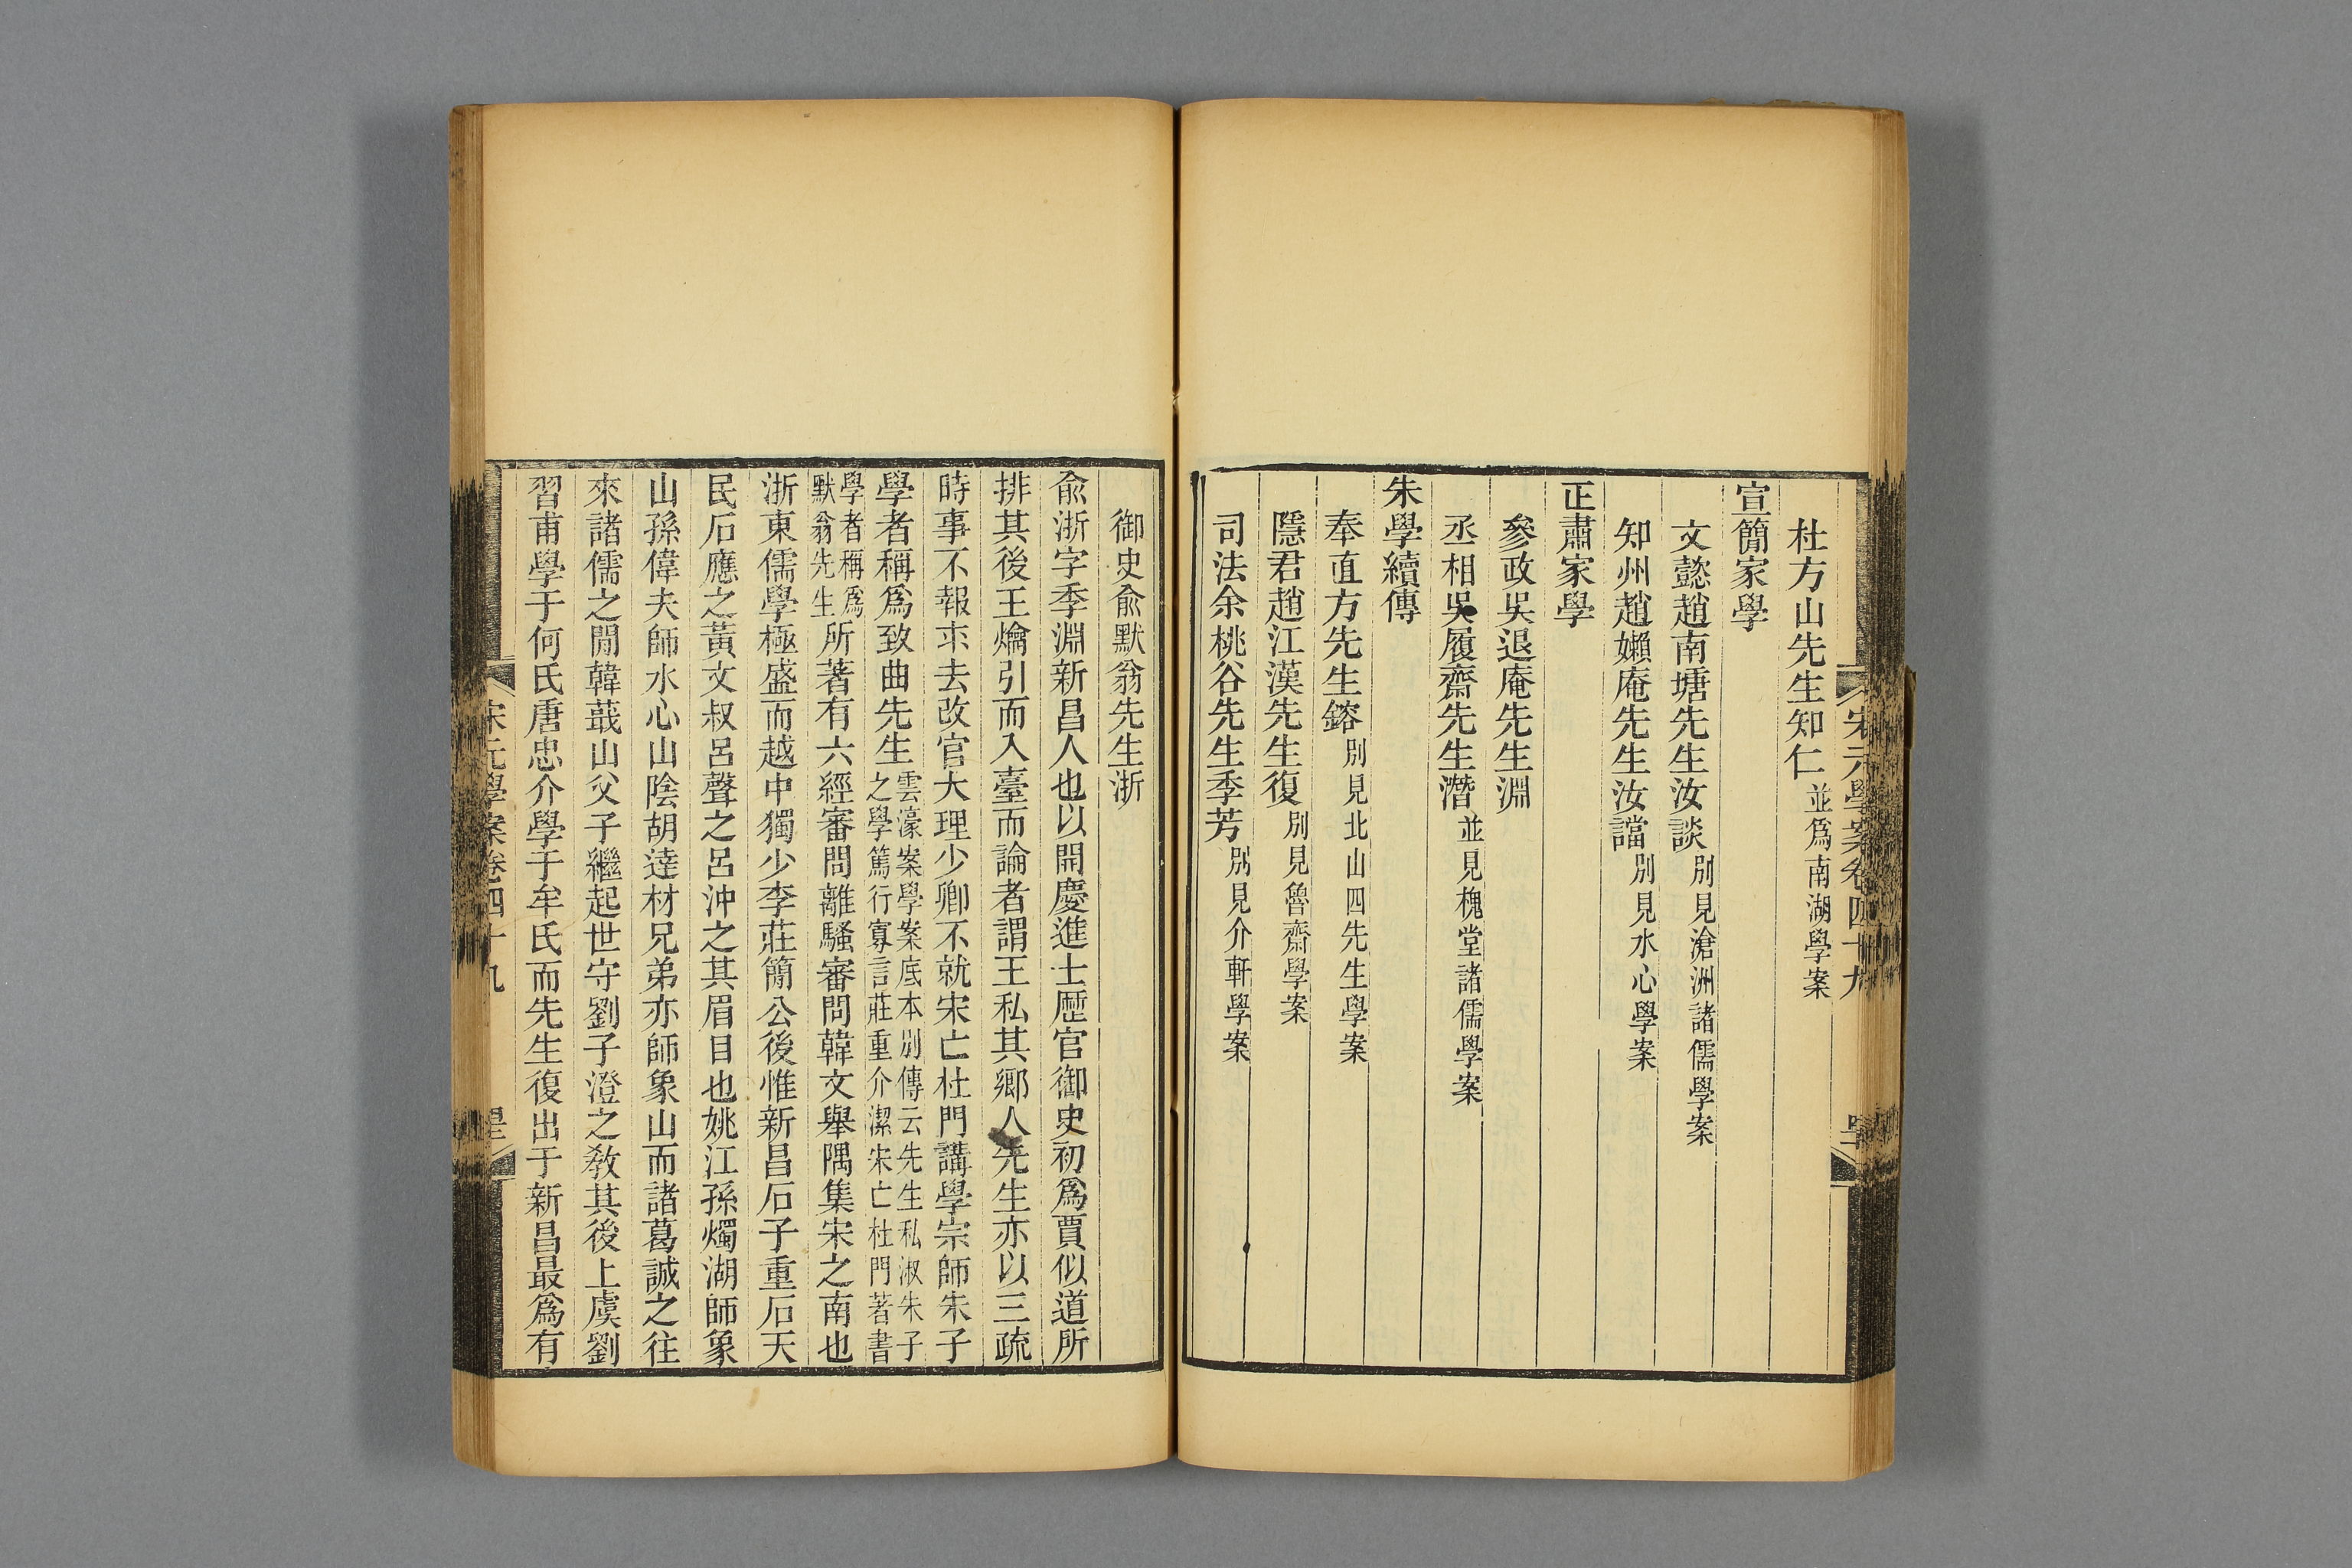 宋元學案卷四十九
杜方山先生知仁並爲南湖學案
宣簡家學
文懿趙南塘先生汝談別見滄洲諸儒學案
知州趙嬾庵先生汝譡別見水心學案
正肅家學
參政吳退庵先生淵
丞相吳履齋先生潛並見槐堂諸儒學案
朱學續傳
奉直方先生鎔別見北山四先生學案
隱君趙江漢先生復別見魯齋學案
司法余桃谷先生季芳別見介軒學案
御史兪默翁先生浙
兪浙字季淵新昌人也以開慶進士歷官御史初爲賈似道所
排其後王爚引而入臺而論者謂王私其鄉人先生亦以三疏
時事不報求去改官大理少卿不就宋亡杜門講學宗師朱子
學者稱爲致曲先生雲濠案學案底本別傳云先生私淑朱子之學篤行寡言莊重介潔宋亡杜門著書
學者稱爲默翁先生所著有六經審問離騷審問韓文舉隅集宋之南也
浙東儒學極盛而越中獨少李莊簡公後惟新昌石子重石天
民石應之黃文叔呂聲之呂沖之其眉目也姚江孫燭湖師象
山孫偉夫師水心山陰胡達材兄弟亦師象山而諸葛誠之往
來諸儒之閒韓蕺山父子繼起世守劉子澄之敎其後上虞劉
習甫學于何氏唐忠介學于牟氏而先生復出于新昌最爲有
宋元學案卷四十九